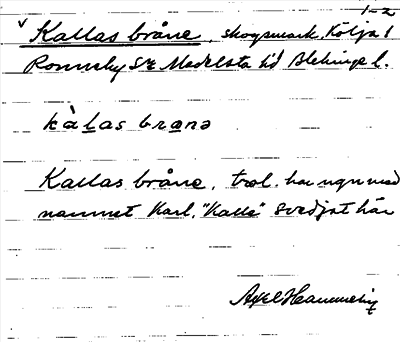 1-2
v Kallas bråne, skogsmark, Kölja 1
Ronneby Sn Medelsta hd Blekinge l.
kàlas branə
Kallas bråne, trol. har ngn med
namnet Karl, "Kalle" svedjat här
Axel Hammeling